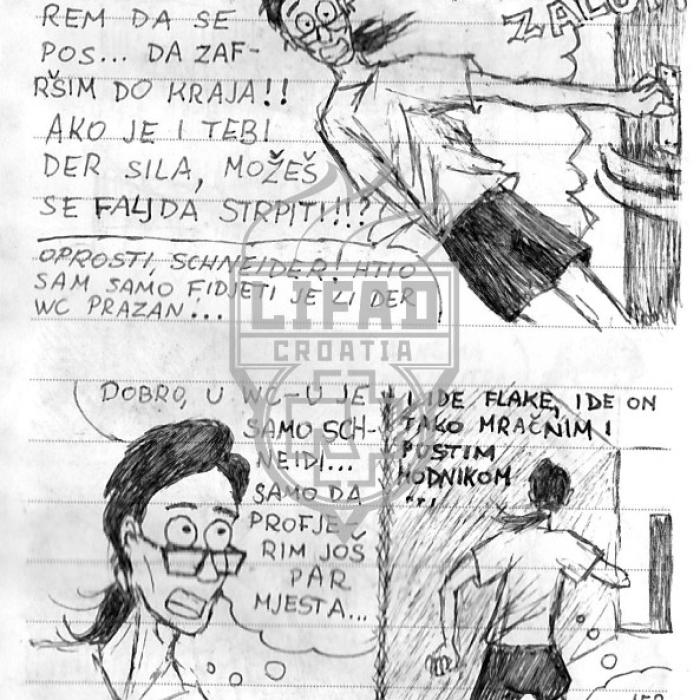 REM DA SE
POS... DA ZAF-
RŠIM DO KRAJA!!
AKO JE I TEBI
DER SILA, MOŽEŠ
SE FALJDA STRPITI!!!?
OPROSTI, SCHNEIDER! HTIO
SAM SAMO FIDJETI JE LI DER
WC PRAZAN!...
LIFAD
CROATIA
DOBRO, U WC-U JE
SAMO SCH-
NEIDI...
SAMO DA
PROFJE-
RIM JOŠ
PAR
MJESTA...
I IDE FLAKE, IDE ON
TAKO MRAČNIM I
PUSTIM
HODNIKOM
...